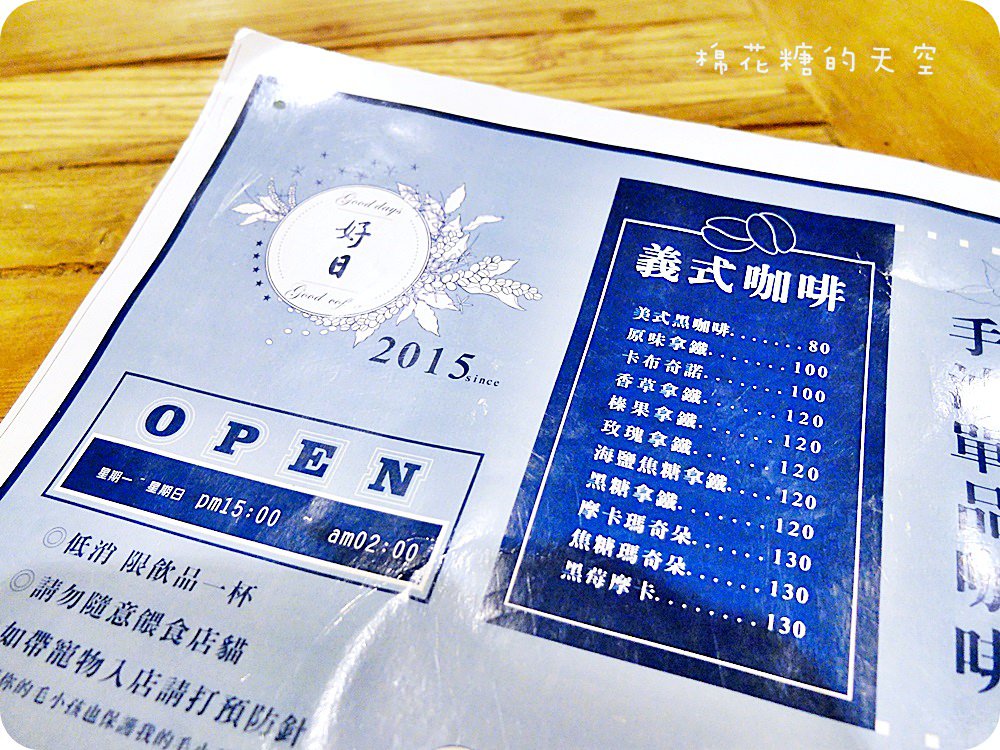 棉花糖的天空
Good days
好日
Good cof
2015 since
OPEN
星期一~星期日 pm15:00 ~ am02:00
◎低消 限飲品一杯
◎請勿隨意餵食店貓
如帶寵物入店請打預防針
你的毛小孩也保護我的毛小
義式咖啡
美式黑咖啡........80
原味拿鐵........100
卡布奇諾........100
香草拿鐵........120
榛果拿鐵........120
玫瑰拿鐵........120
海鹽焦糖拿鐵.....120
黑糖拿鐵........120
摩卡瑪奇朵......130
焦糖瑪奇朵......130
黑莓摩卡........130
手
單品咖啡